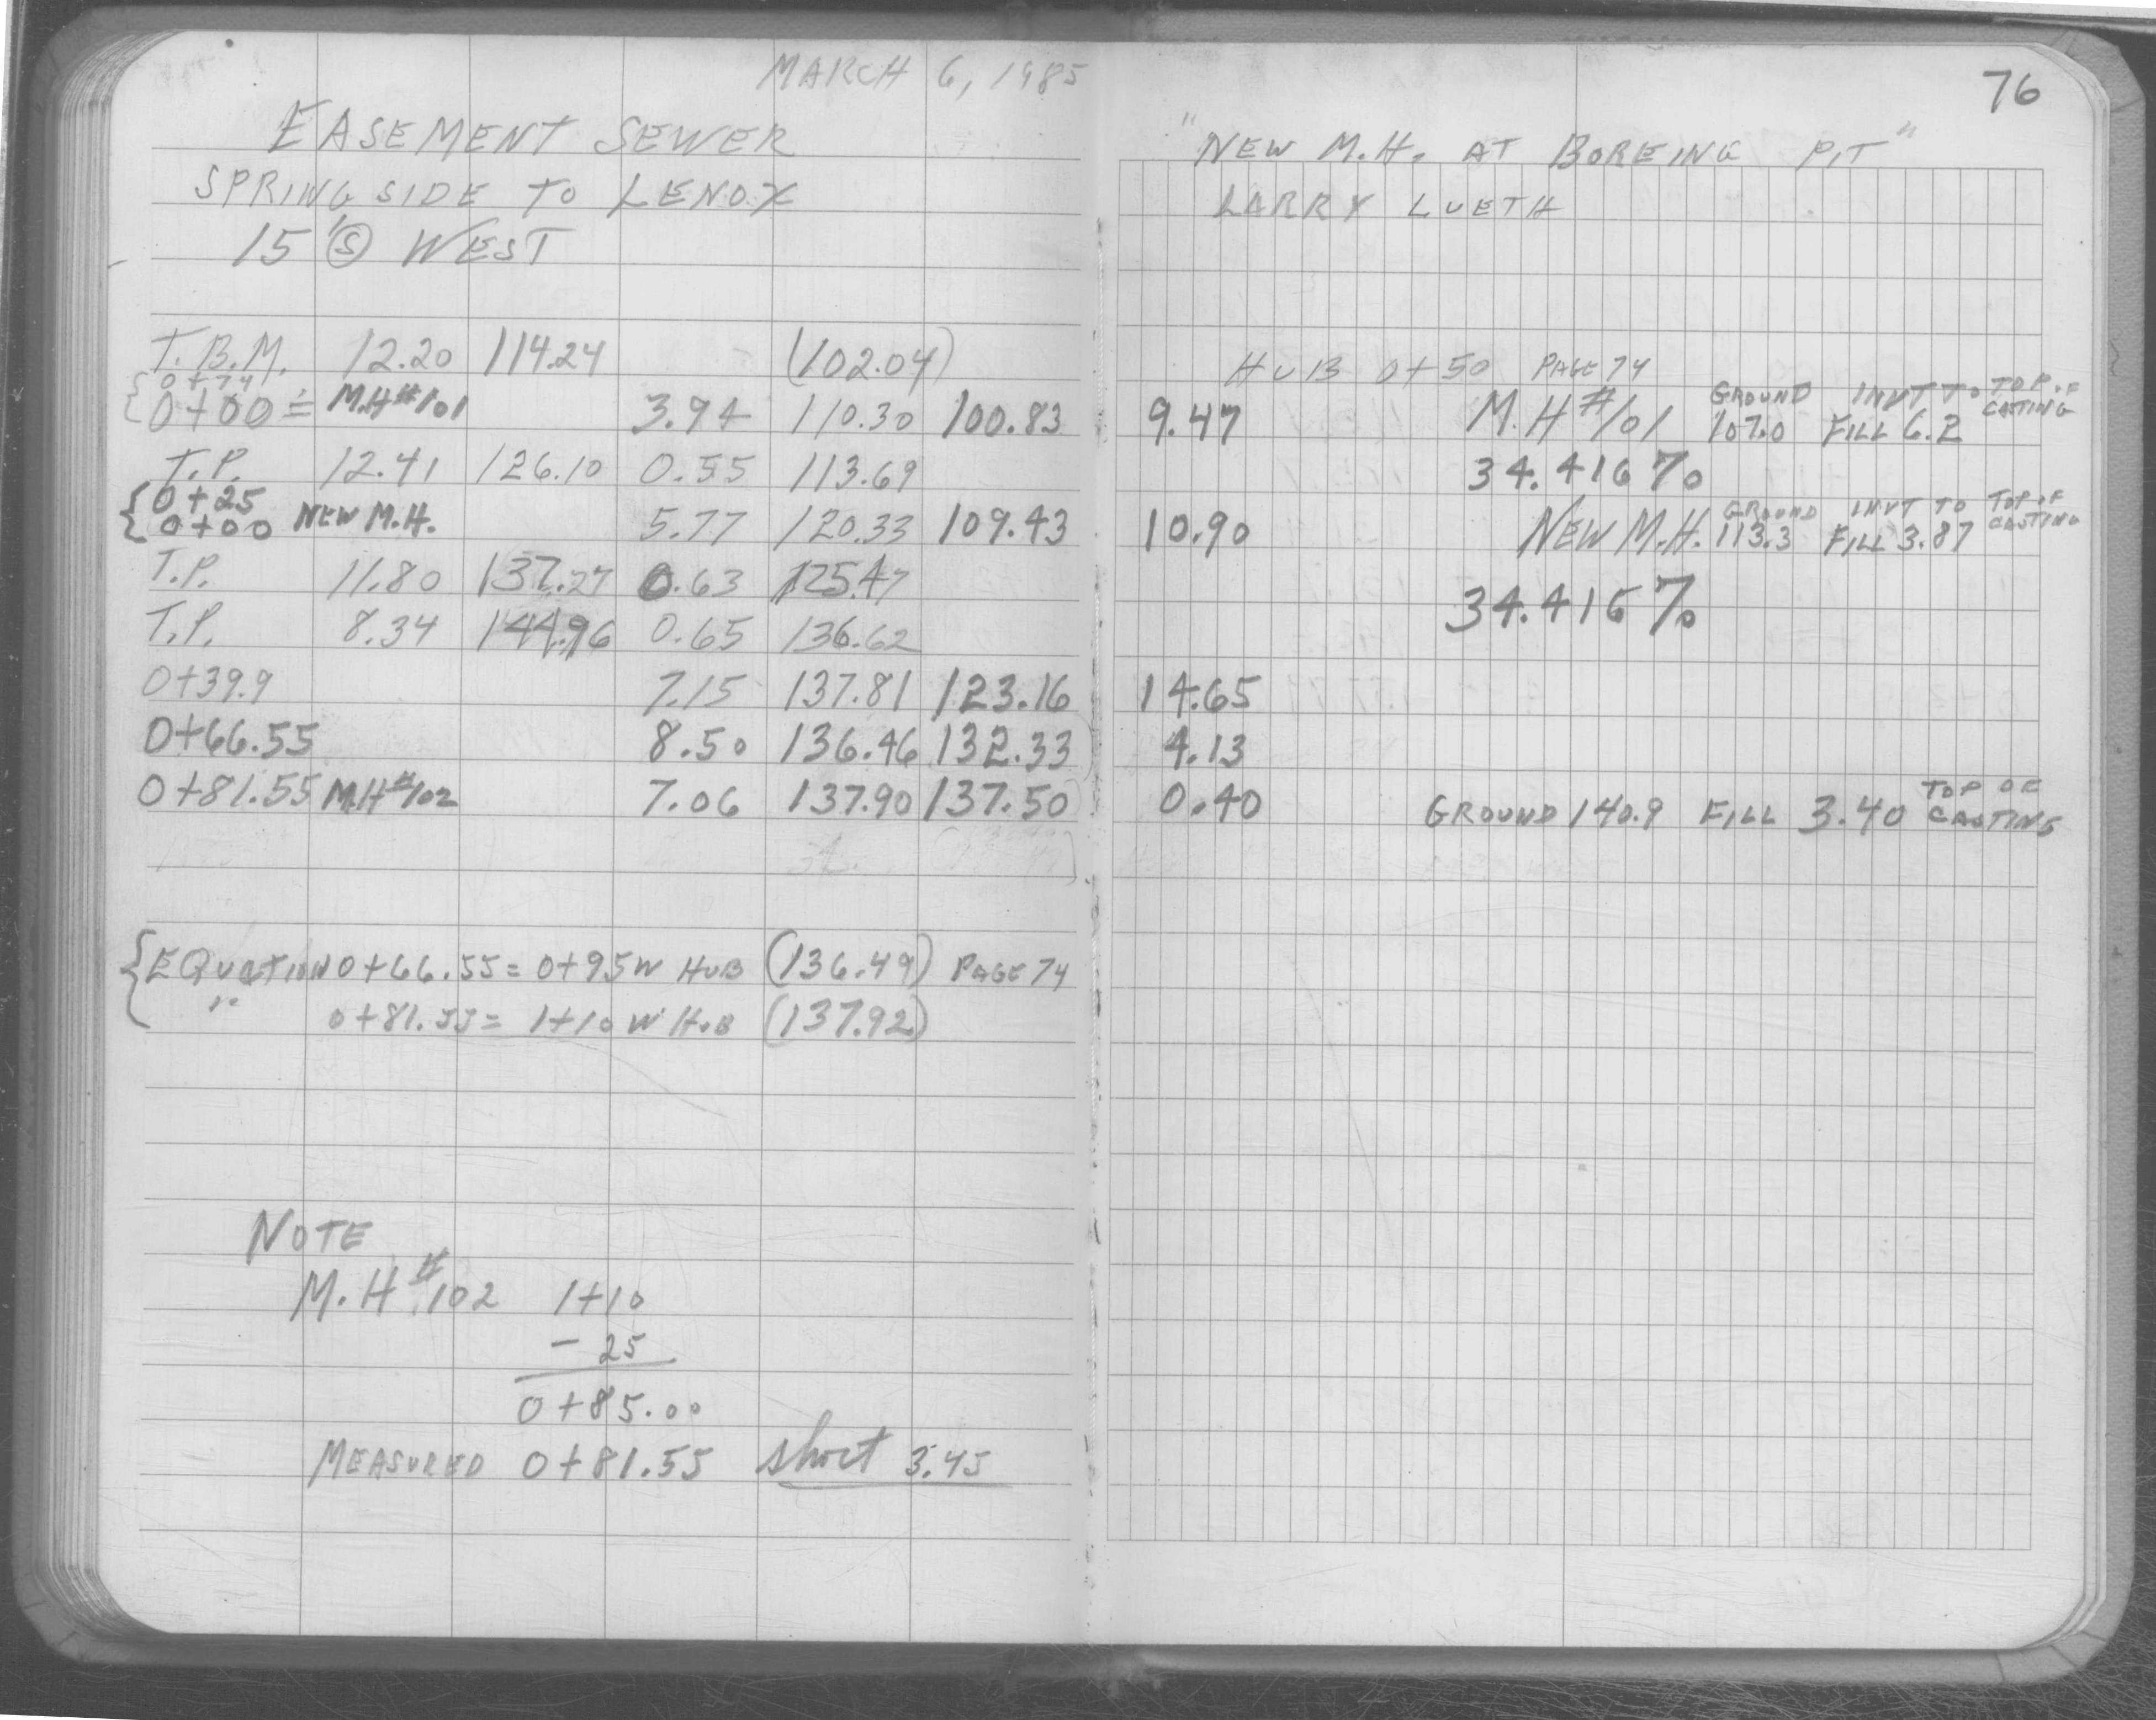 MARCH 6, 1985
EASEMENT SEWER
SPRINGSIDE TO LENOX
15' Ⓢ WEST
T.B.M. 12.20 114.24 (102.04)
0+74
0+00 = M.H#101 3.94 110.30 100.83
T.P. 12.41 126.10 0.55 113.69
0+25
0+00 NEW M.H. 5.77 120.33 109.43
T.P. 11.80 137.27 0.63 125.47
T.P. 8.34 144.96 0.65 136.62
0+39.9 7.15 137.81 123.16
0+66.55 8.50 136.46 132.33
0+81.55 M.H#102 7.06 137.90 137.50
EQUATION 0+66.55 = 0+95W HUB (136.49) PAGE 74
" 0+81.55 = 1+10 W HUB (137.92)
NOTE
M.H#102 1+10
- 25
0+85.00
MEASURED 0+81.55 short 3.45
76
"NEW M.H. AT BOREING PIT"
LARRY LUETH
HUB 0+50 PAGE 74
9.47 M.H#101 GROUND 107.0 INVT TO FILL 6.2 TOP OF CASTING
34.416%
10.90 NEW M.H. GROUND 113.3 INVT TO FILL 3.87 TOP OF CASTING
34.416%
14.65
4.13
0.40 GROUND 140.9 FILL 3.40 TOP OF CASTING